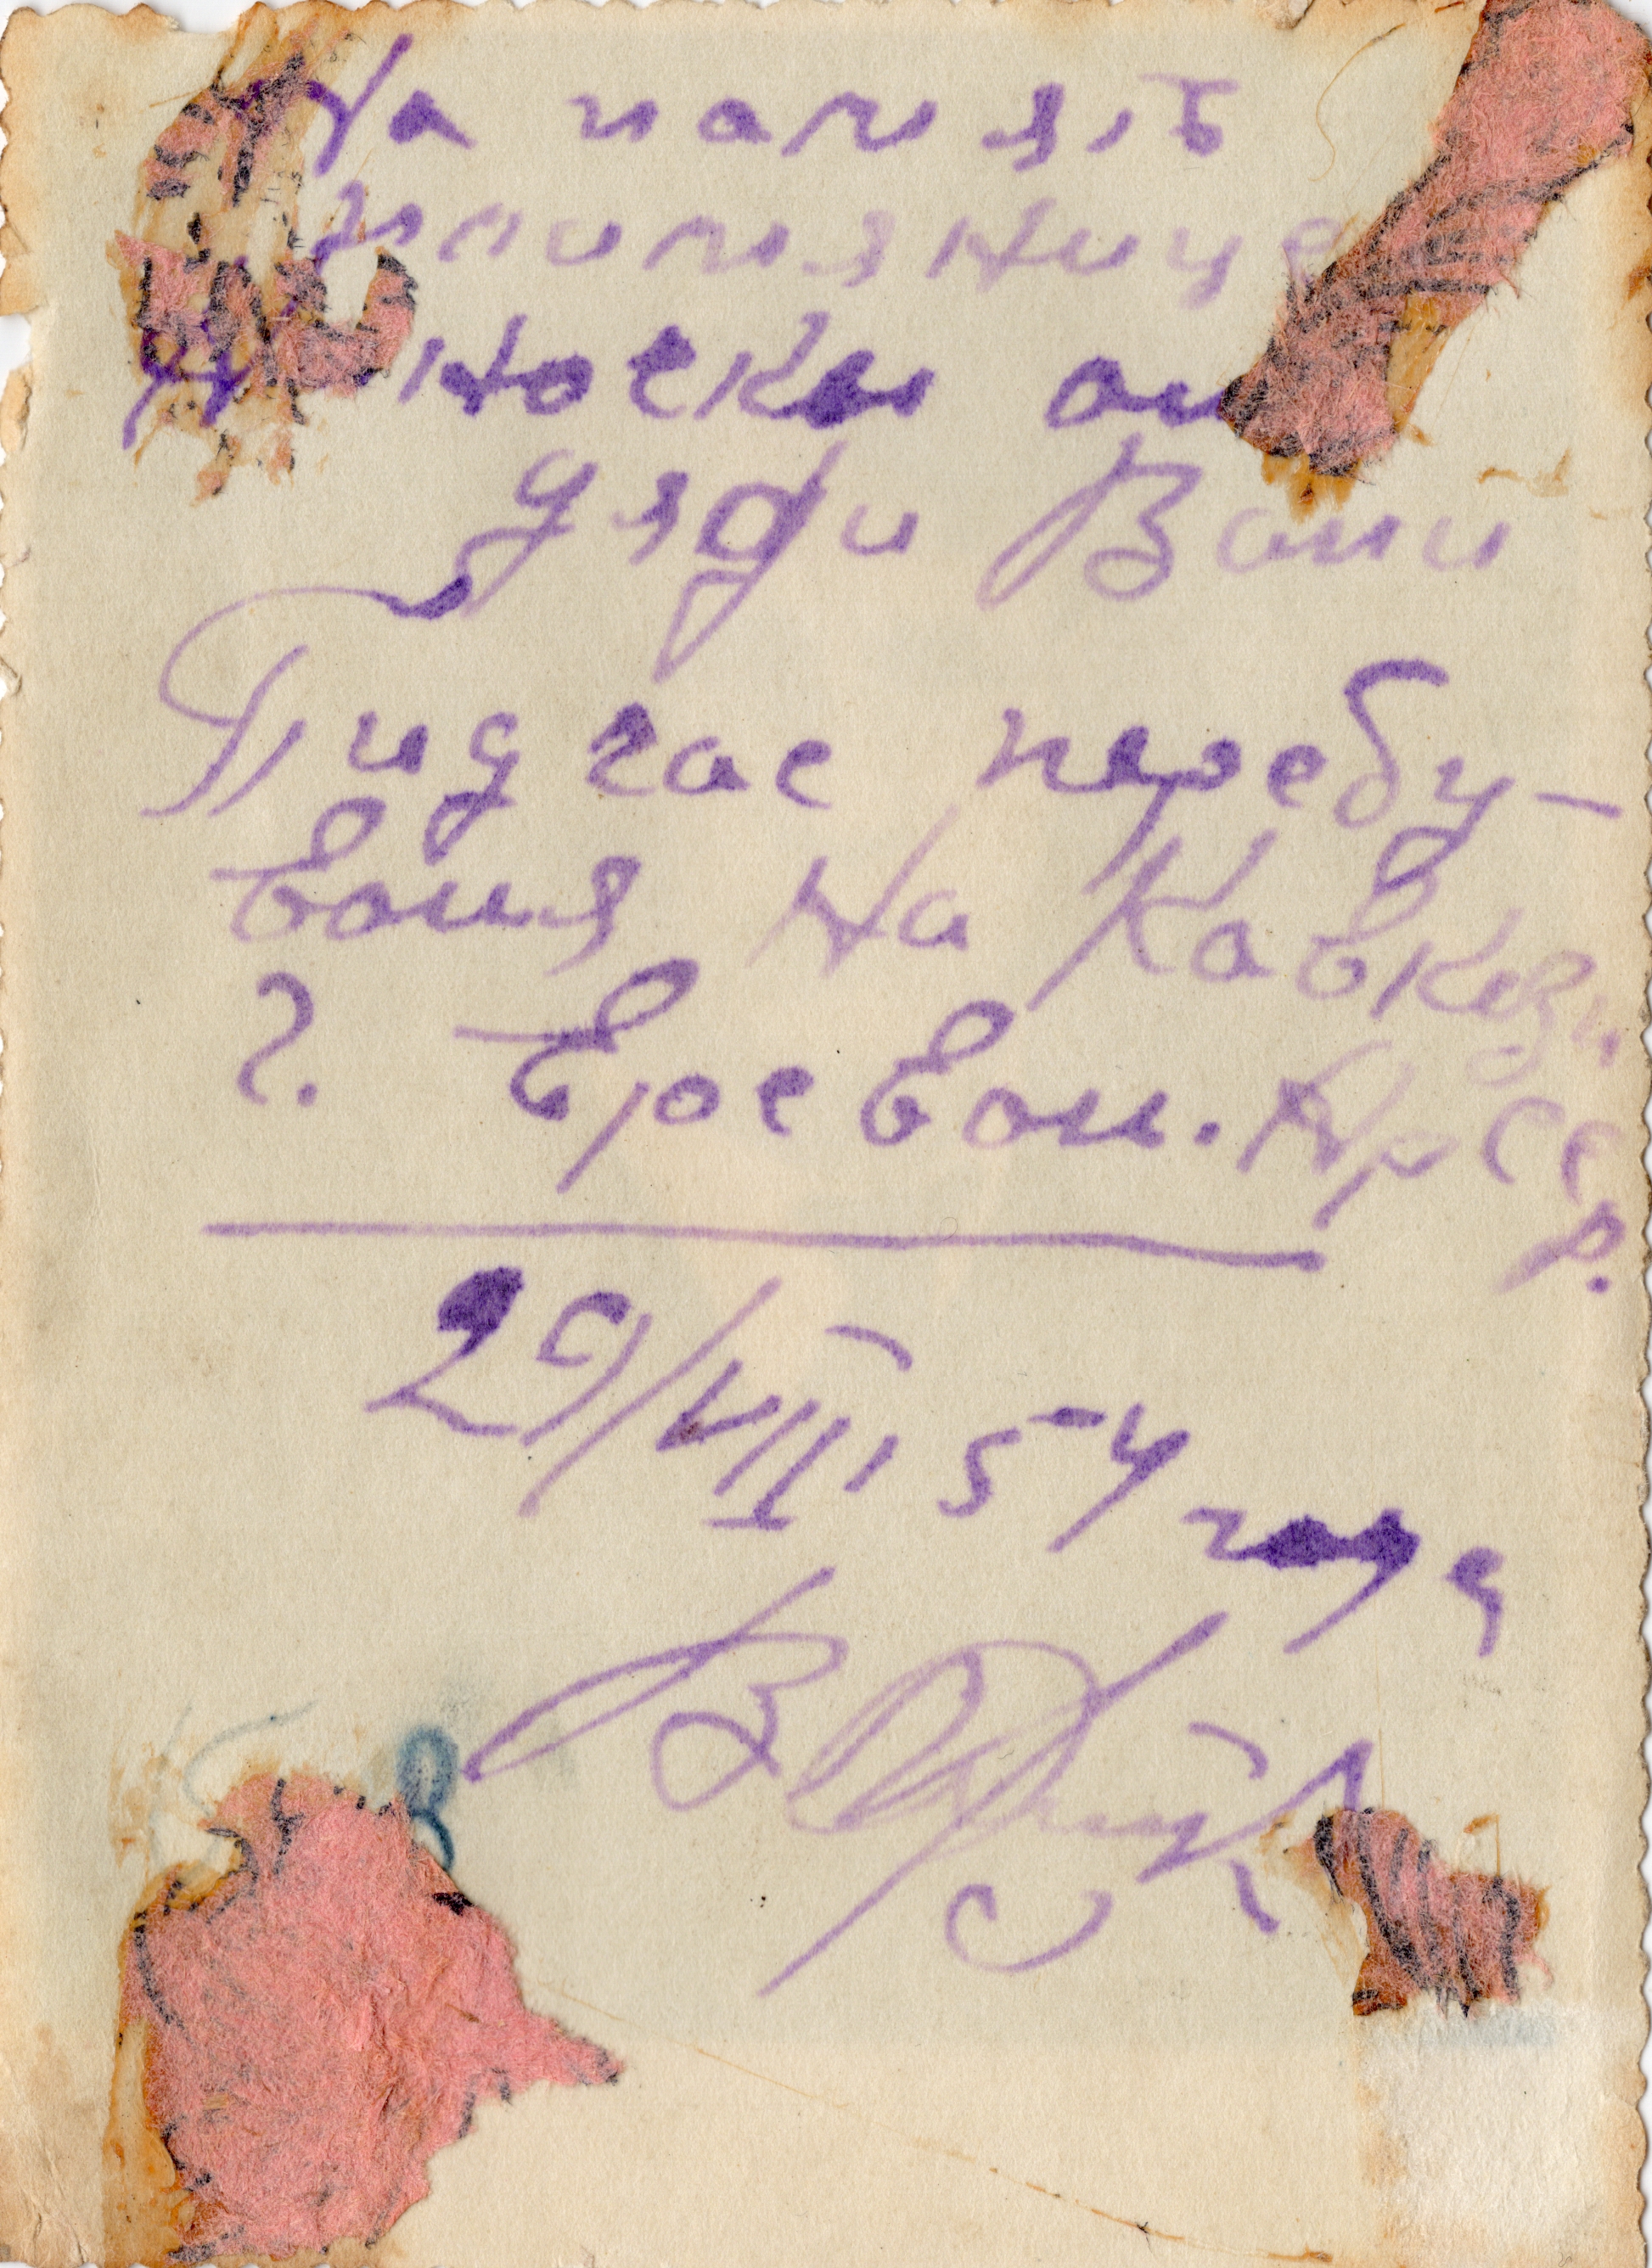 На память
племянице
от
дяди Вани
Пид час перебу-
вания на Кавкази
г. Ереван. Ар ССР.
29/VIII 54 года